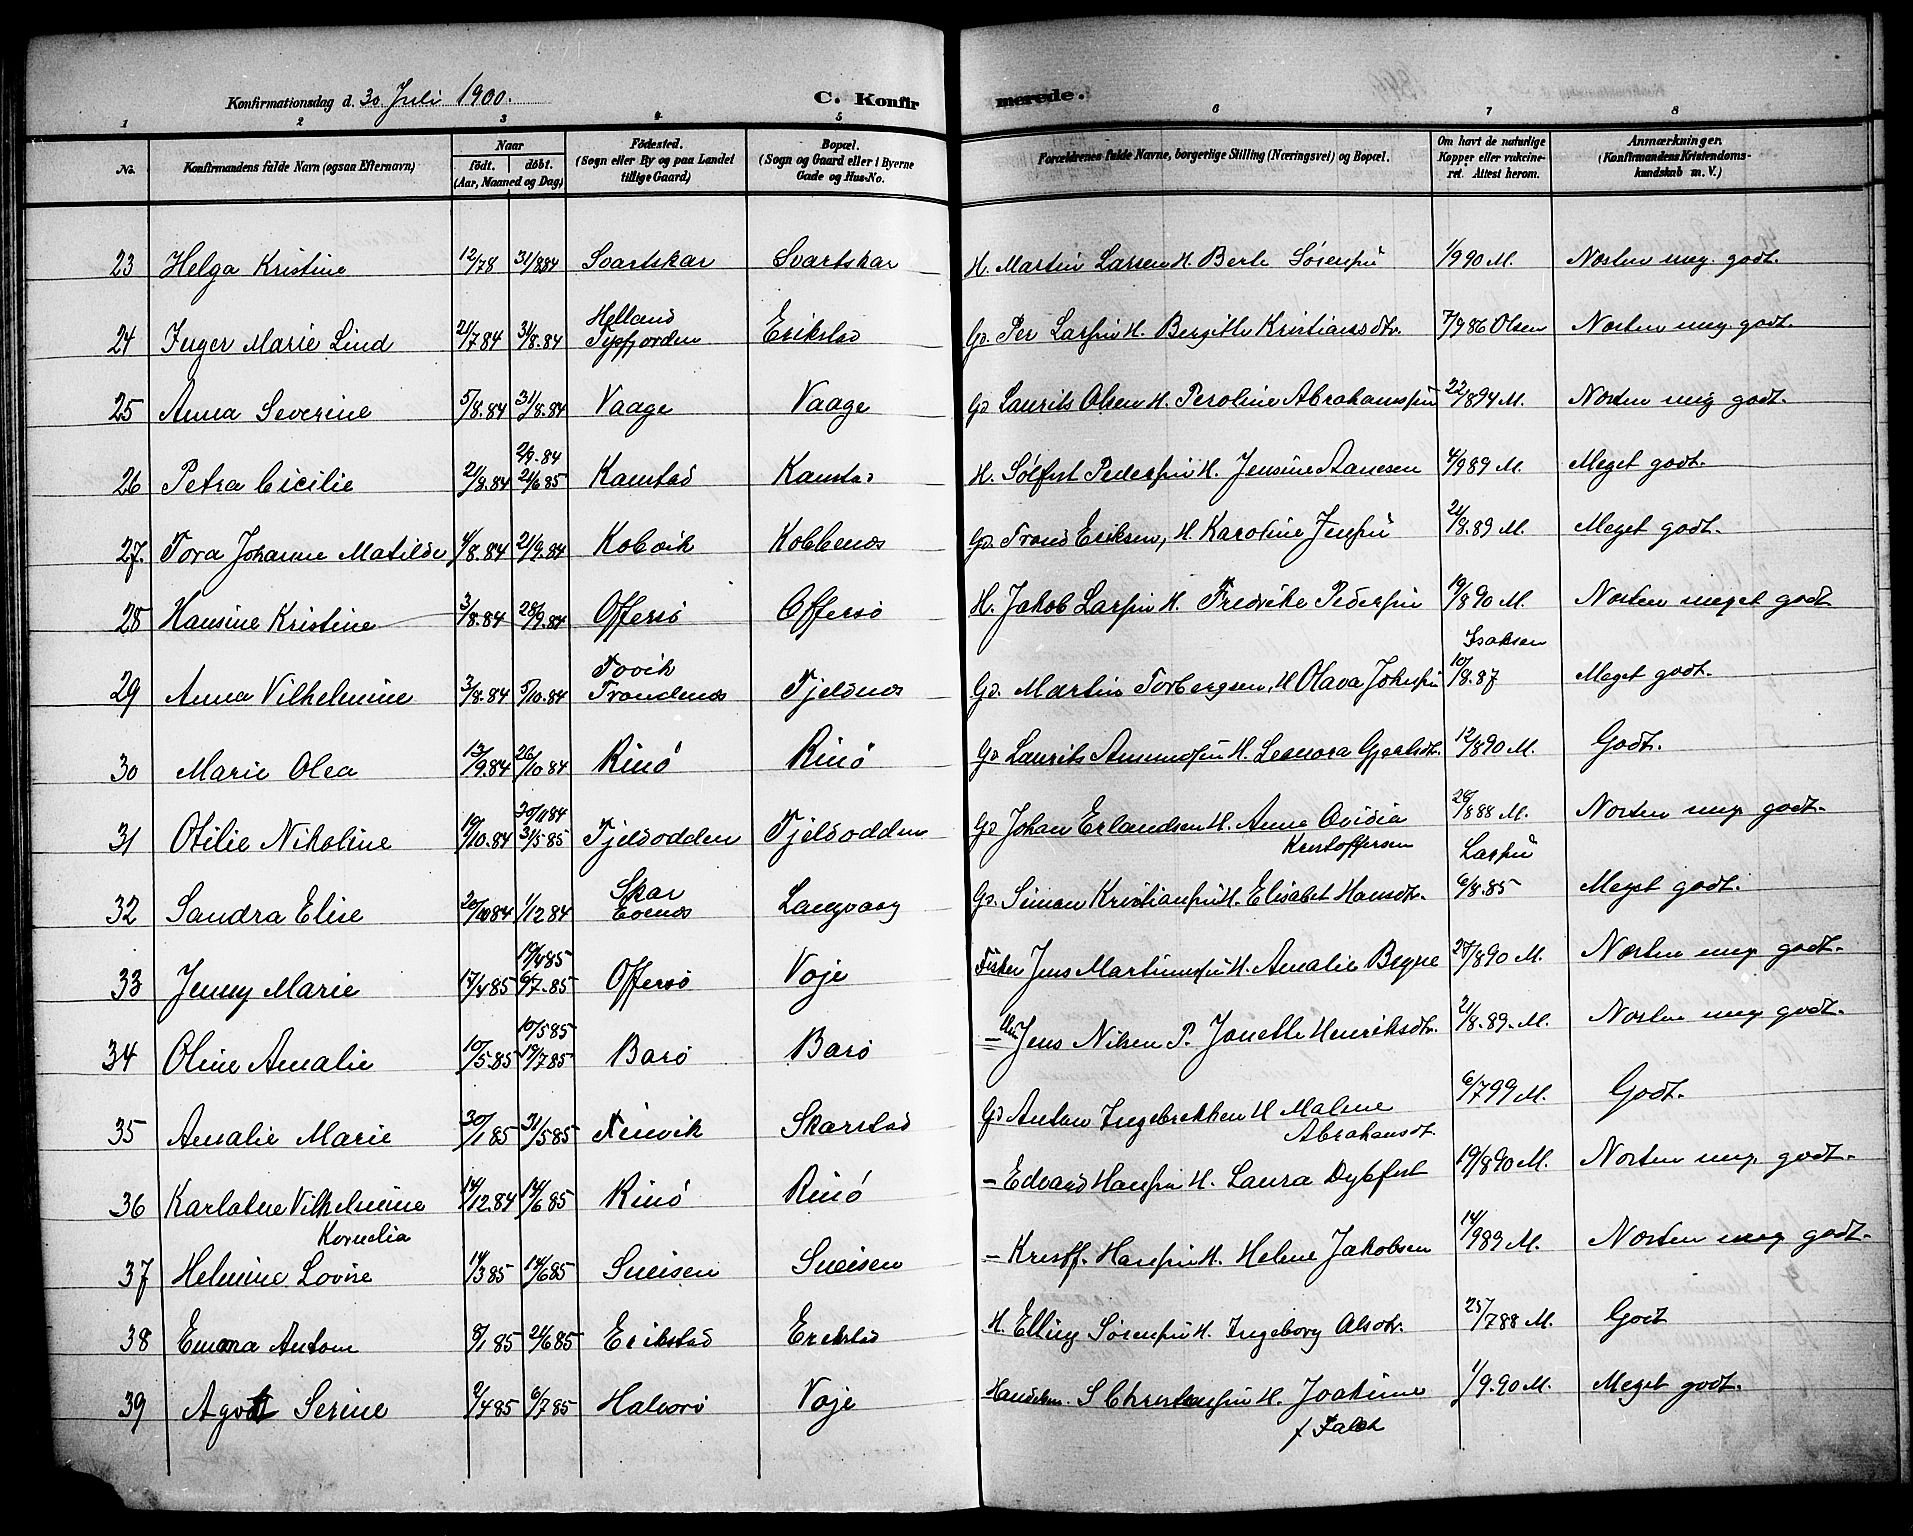 Konfirmationsdag d. 30 Juli 1900.
C. Konfirmerede.
1 2 3 4 5 6 7 8
No. Konfirmandens fulde Navn (ogsaa Efternavn)
Naar
födt. döbt.
(Aar, Maaned og Dag)
Födested.
(Sogn eller By og paa Landet
tillige Gaard)
Bopæl.
(Sogn og Gaard eller i Byerne
Gade og Hus-No.
Forældrenes fulde Navne, borgerlige Stilling (Næringsvei) og Bopæl.
Om havt de naturlige
Kopper eller vakcine-
ret. Attest herom.
Anmærkninger.
(Konfirmandens Kristendoms-
kundskab m. V.)
23 Helga Kristine 12/78 31/884 Svartskar Svartskar H. Martin Larsen H. Berle Sörensen 1/990 M. Næsten meg. godt.
24 Inger Marie Lind 21/784 31/8.84 Helland Erikstad Gd. Per Larsen H. Bergitte Kristiansdtr. 7/986 Olsen Næsten meg. godt.
25 Anna Severine 5/8.84 31/8.84 Vaage Vaage Gd Laurits Olsen H. Peroline Abrahamsen 22/894 M. Næsten meg godt.
26 Petra Cicilie 2/8.84 21/685 Kanstad Kanstad H. Sölfest Pedersen H. Jensine Aanesen 4/989 M. Meget godt.
27. Tora Johanne Matilde 4/8.84 21/9.84 Kobvik Kobbenæs Gd. Trond Eriksen, H. Karoline Jensen 24/8.89 M. Meget godt.
28 Hansine Kristine 3/8.84 28/9.84 Offersö Offersö H. Jakob Larsen H. Fredrike Pedersen 19/890 M. Næsten meget godt
Isaksen
29 Anna Vilhelmine 3/8.84 5/10.84 Tovik Trondenæs Fjeldnæs Gd. Martin Torbergsen, H Olava Johnsen 10/8.87 Meget godt.
30 Marie Olea 13/9.84 26/10 84 Rinö Rinö Gd Laurits Amundsen H. Leonora Gjertsdt. 12/890 M. Godt.
30/1184
31 Otilie Nikoline 19/10.84 31/5 85 Fjeldodden Fjeldodden Gd Johan Erlandsen H. Anne Ovidia 28/888 M. Næsten meg. godt.
Kristoffersen
Larsen
32 Sandra Elise 20/1084 1/12 84 Skar Evenes Langvaag Gd. Simon Kristiansen H. Elisabet Hansdtr. 6/8.85 Meget godt.
19/485
33 Jenny Marie 17/485 6/7.85 Offersö Voje Fisker Jens Martinussen H. Amalie Brynie 27/890 M. Næsten meg. godt.
10/585
34 Oline Amalie 10/585 19/785 Barö Barö Jens Nilsen P. Jonette Henriksdtr. 2/8.89. M. Næsten meg. godt.
35 Amalie Marie 30/185 31/585 Finvik Skarstad Gd Anton Ingebrektsen H Malene 6/799 M. Godt.
Abrahamsdt.
36 Karlotne Vilhelmine 14/12.84 14/685 Rinö Rinö - Edvard Hansen H. Laura Dybfest 19/890 M. Næsten meg. godt.
Kornelia
37 Helmine Lovise 14/385 14/685 Sneisen Sneisen - Kristf. Hansen H. Helene Jakobsen 14/989 M. Næsten meg godt.
38 Emma Antom 8/185 21/685 Erikstad Erikstad H. Elling Sörensen H. Ingeborg Olsdtr. 25/788 M. Godt
39 Agot Serine 2/485 6/785 Halvorö Voje Handelsm. S Christensen H. Joakime 1/9.90 M. Meget godt.
f Falch